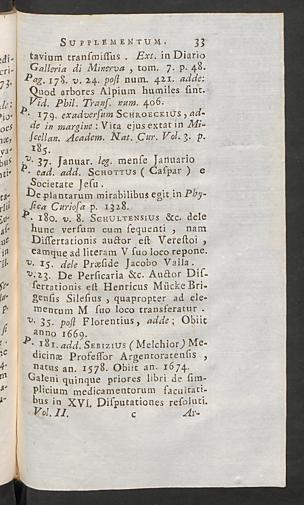 SUPPLEMENTUM. 33
tavium transmissus. Ext. in Diario
Galleria di Minerva, tom. 7. p. 48.
Pag. 178. v. 24. post num. 421. adde:
Quod arbores Alpium humiles sint.
Vid. Phil. Trans. num. 406.
P. 179. exadversum SCHROECKIUS, ad-
de in margine: Vita ejus extat in Mi-
scellan. Academ. Nat. Cur. Vol. 3. p.
185.
v. 37. Januar. leg. mense Januario
P. ead. add. SCHOTTUS (Caspar) e
Societate Jesu.
De plantarum mirabilibus egit in Phy-
sica Curiosa p. 1328.
P. 180. v. 8. SCHULTENSIUS &c. dele
hunc versum cum sequenti, nam
Dissertationis auctor est Verestoi,
eamque ad literam V suo loco repone.
v. 15. dele Præside Jacobo Vaila.
v. 23. De Persicaria &c. Auctor Dis-
sertationis est Henricus Mücke Bri-
gensis Silesius, quapropter ad ele-
mentum M suo loco transferatur.
v. 35. post Florentius, adde; Obiit
anno 1669.
P. 181. add. SEBIZIUS (Melchior) Me-
dicinæ Professor Argentoratensis,
natus an. 1578. Obiit an. 1674.
Galeni quinque priores libri de sim-
plicium medicamentorum facultati-
bus in XVI. Disputationes resoluti.
Vol. II. c Ar-